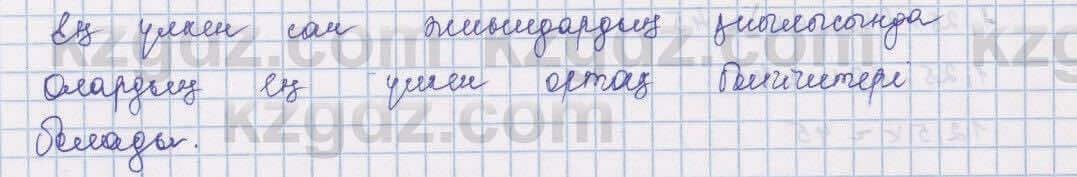 Ең үлкен сан жиындардың қиылысында
олардың ең үлкен ортақ бөлгіштері
болады.
kzgdz.com kzgdz.com kzg
kzgdz.com